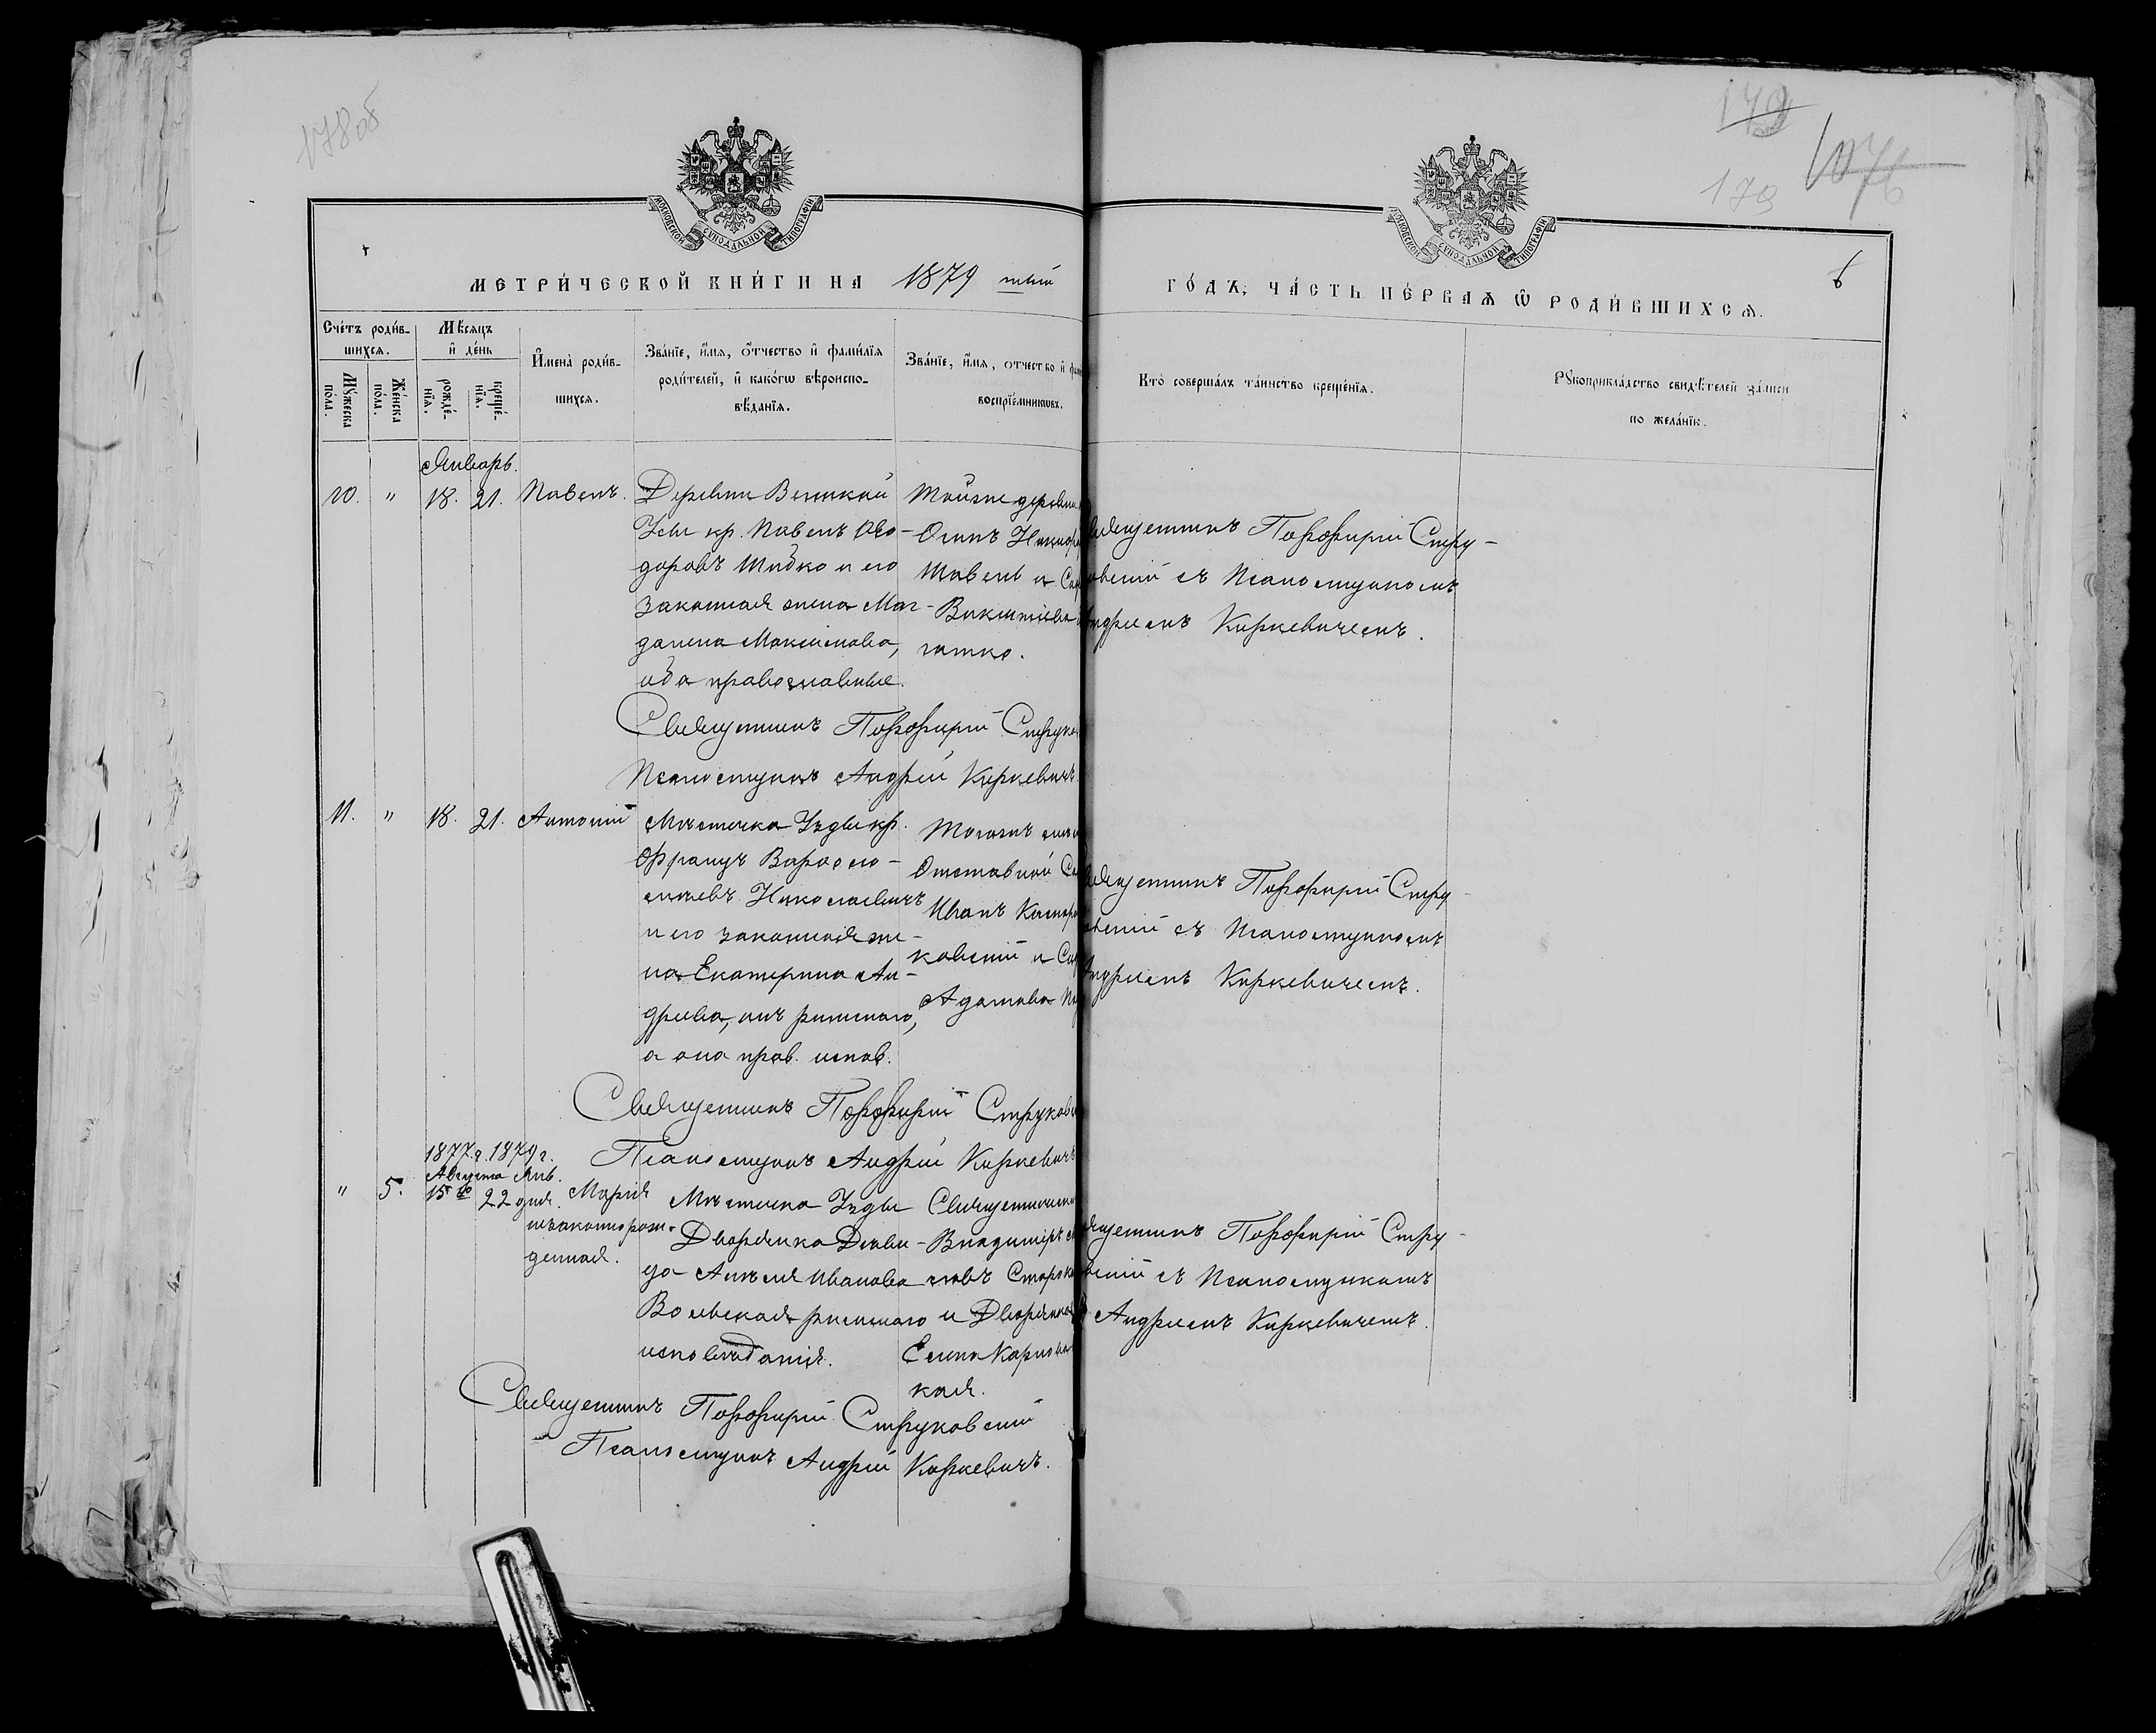 178 об
179
1076
179
МОСКОВСКОЙ СѴНОДАЛЬНОЙ ТИПОГРАФІИ
МОСКОВСКОЙ СѴНОДАЛЬНОЙ ТИПОГРАФІИ
МЕТРИ́ЧЕСКОЙ КНИ́ГИ НА 1879 тый
ГО́ДЪ, ЧА́СТЬ ПЕ́РВАѦ Ѡ҆ РОДИ́ВШИХСѦ.
6
Сче́тъ роди́в-
шихсѧ.
Мѣ́сѧцъ
и҆ де́нь
Мꙋ́жеска
по́ла.
Же́нска
по́ла.
рожде́-
нїѧ.
креще́-
нїѧ.
И҆мена̀ роди́в-
шихсѧ.
Зва́нїе, и҆́мѧ, ѻ҆́тчество и҆ фами́лїѧ
роди́телей, и҆ како́гѡ вѣроиспо-
вѣ́данїѧ.
Зва́нїе, и҆́мѧ, ѻ҆тчество и҆ фам
воспрїе́мникѡвъ.
Кто̀ соверша́лъ та́инство креще́нїѧ.
Рꙋкоприкла́дство свидѣ́телей за́писи
по жела́нїю.
Январь.
10. " 18. 21. Павелъ.
Деревни Великой
Усы кр. Павелъ Ѳео-
доровъ Шидко и его
законная жена Маг-
далена Максимова,
оба православные.
Тойже деревни
Осипъ
и
Викентіева
Священникъ Порфирій Стру-
овскій съ Псаломщикомъ
Андреемъ Киркевичемъ.
Священникъ Порфирій Струков
Псаломщикъ Андрей Киркевичъ.
11. " 18. 21. Антоній
Мѣстечка Узды кр.
Францъ Варѳоло-
меевъ Николаевичъ
и его законная же-
на Екатерина Ан-
дреева, онъ римскаго,
а она прав. испов.
Тогожъ мѣст
Отставной
Иванъ
ковскій и
Адамова
Священникъ Порфирій Стру-
овскій съ Псаломщикомъ
Андреемъ Киркевичемъ.
Священникъ Порфирій Струковс
Псаломщикъ Андрей Киркевичъ
1877 г. 1879 г.
Августа Янв.
" 5. 15го 22 дня. Марія
незаконорож-
денная.
Мѣстечка Узды
Дворянка Дѣви-
ца Анеля Иванова
Вольская римскаго
исповѣданія.
Священническ
Владимiръ
и Дворянка
Елена
кая.
Священникъ Порфирій Стру-
овскій съ Псаломщикомъ
Андреемъ Киркевичемъ.
Священникъ Порфирій Струковскій
Псаломщикъ Андрей Киркевичъ.